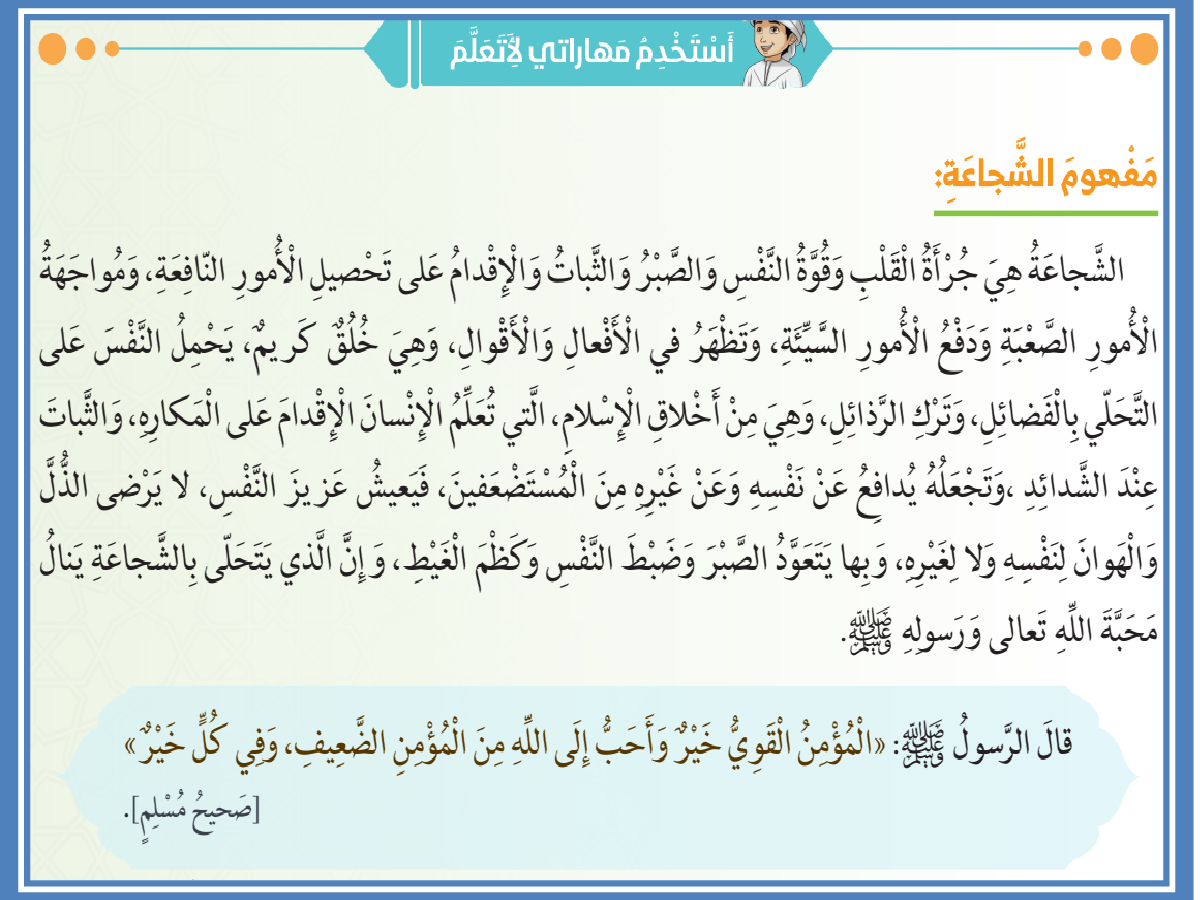 أَسْتَخْدِمُ مَهاراتي لِأَتَعَلَّمَ
مَفْهومَ الشَّجاعَةِ:
الشَّجاعَةُ هِيَ جُرْأَةُ الْقَلْبِ وَقُوَّةُ النَّفْسِ وَالصَّبْرُ وَالثَّباتُ وَالْإِقْدامُ عَلى تَحْصيلِ الْأُمورِ النّافِعَةِ، وَمُواجَهَةُ
الْأُمورِ الصَّعْبَةِ وَدَفْعُ الْأُمورِ السَّيِّئَةِ، وَتَظْهَرُ في الْأَفْعالِ وَالْأَقْوالِ، وَهِيَ خُلُقٌ كَريمٌ، يَحْمِلُ النَّفْسَ عَلى
التَّحَلّي بِالْفَضائِلِ، وَتَرْكِ الرَّذائِلِ، وَهِيَ مِنْ أَخْلاقِ الْإِسْلامِ، الَّتي تُعَلِّمُ الْإِنْسانَ الْإِقْدامَ عَلى الْمَكارِهِ، وَالثَّباتَ
عِنْدَ الشَّدائِدِ ،وَتَجْعَلُهُ يُدافِعُ عَنْ نَفْسِهِ وَعَنْ غَيْرِهِ مِنَ الْمُسْتَضْعَفينَ، فَيَعيشُ عَزيزَ النَّفْسِ، لا يَرْضى الذُّلَّ
وَالْهَوانَ لِنَفْسِهِ وَلا لِغَيْرِهِ، وَبِها يَتَعَوَّدُ الصَّبْرَ وَضَبْطَ النَّفْسِ وَكَظْمَ الْغَيْطِ، وَإِنَّ الَّذي يَتَحَلّى بِالشَّجاعَةِ يَنالُ
مَحَبَّةَ اللَّهِ تَعالى وَرَسولِهِ ﷺ.
قالَ الرَّسولُ ﷺ: «الْمُؤْمِنُ الْقَوِيُّ خَيْرٌ وَأَحَبُّ إِلَى اللَّهِ مِنَ الْمُؤْمِنِ الضَّعِيفِ، وَفِي كُلٍّ خَيْرٌ»
[صَحيحُ مُسْلِمٍ].